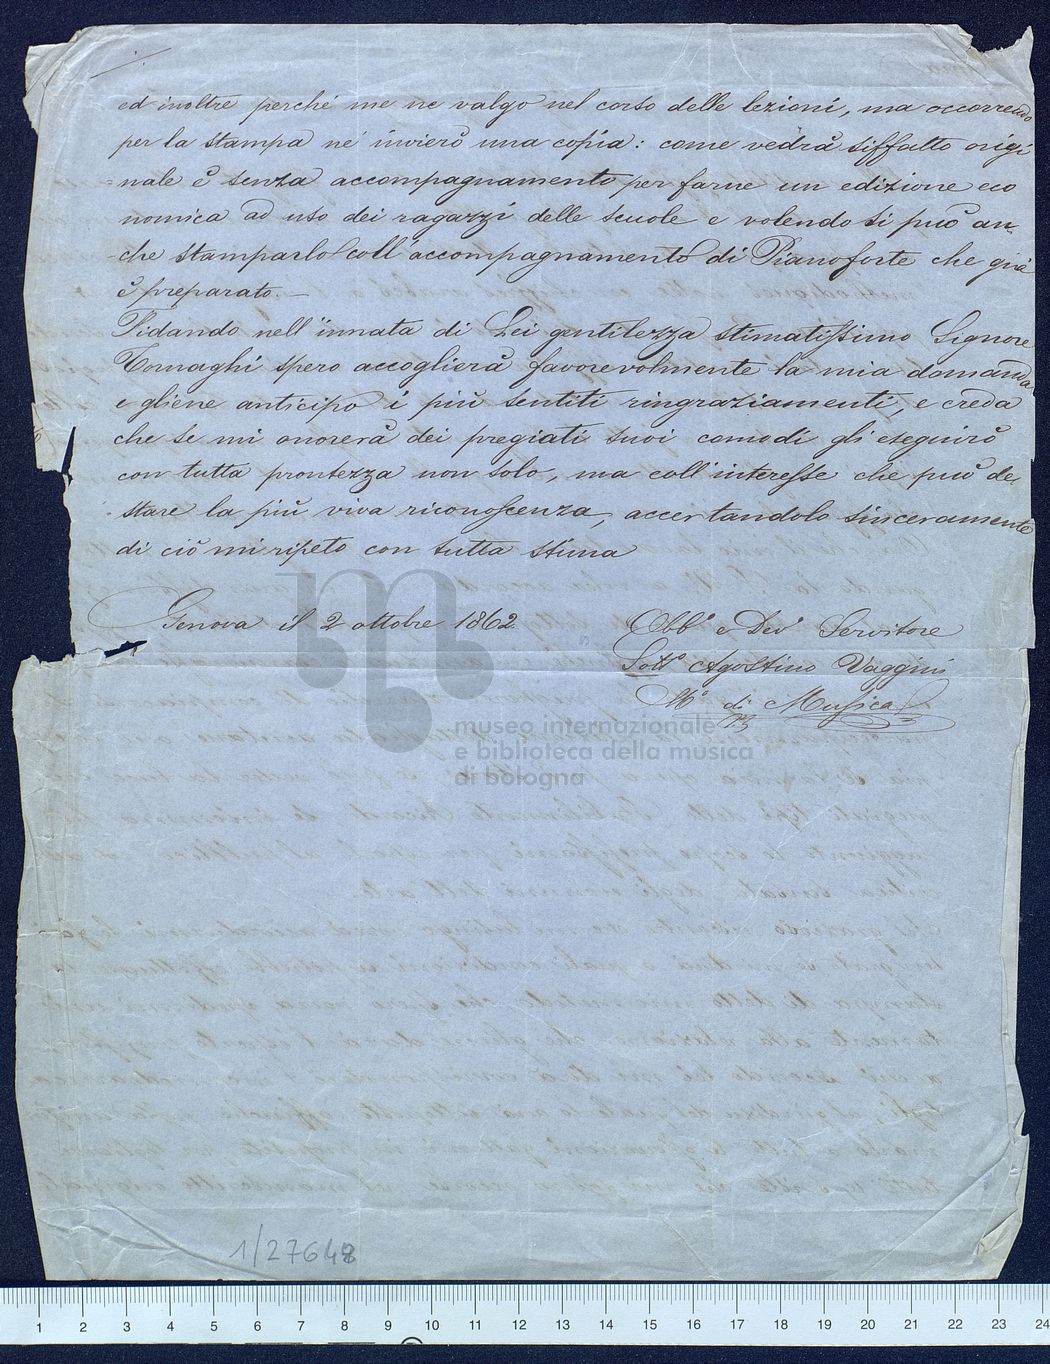 ed inoltre perché me ne valgo nel corso delle lezioni, ma occorrendo
per la stampa né invierò una copia: come vedrà siffatto origi
nale è senza accompagnamento per farne un edizione eco
nomica ad uso dei ragazzi delle scuole e volendo si può an-
-che stamparlo coll'accompagnamento di Pianoforte che già
è preparato.—
Fidando nell'innata di Lei gentilezza stimatissimo Signore
Tornaghi spero accoglierà favorevolmente la mia domanda
e gliene anticipo i più sentiti ringraziamenti, e creda
che se mi onorerà dei pregiati suoi comodi gli eseguirò
con tutta prontezza non solo, ma coll'interesse che può de-
stare la più viva riconoscenza, accertandolo sinceramente
di ciò mi ripeto con tutta stima
Genova il 2 ottobre 1862
Obb.o e Dev.o Servitore
Sott.o Agostino Vaggini
M.o di Musica
museo internazionale
e biblioteca della musica
di bologna
1/27648
1 2 3 4 5 6 7 8 9 10 11 12 13 14 15 16 17 18 19 20 21 22 23 24